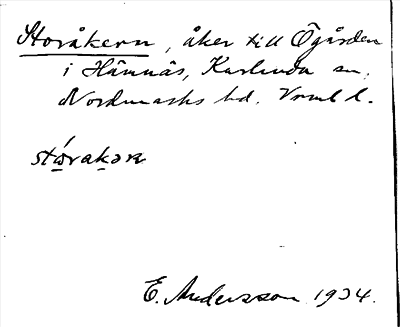 Storåkern, åker till Ögården
i Hännäs, Karlanda sn,
Nordmarks hd. Vrml l.
stó̤rakəra
E. Andersson 1934.